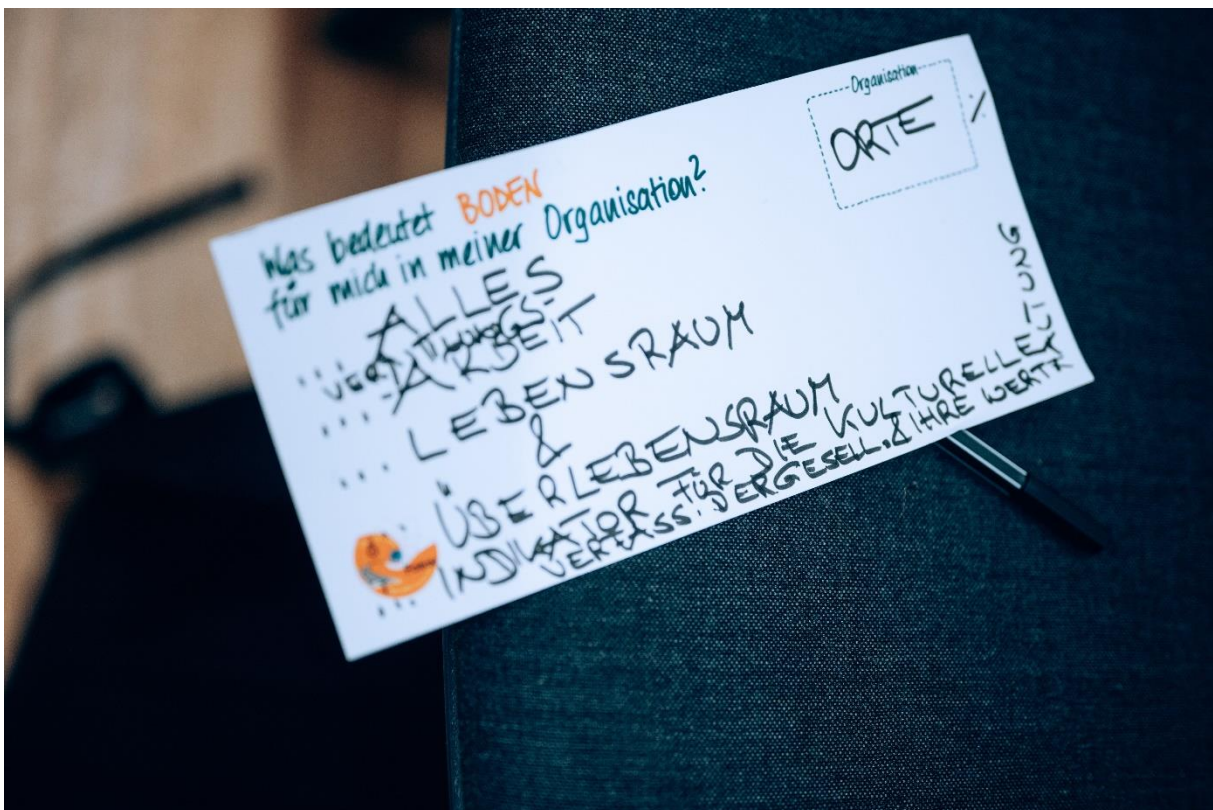 Organisation
ORTE ./.
Was bedeutet BODEN
für mich in meiner Organisation?
... ALLES
... ARBEIT
... LEBENSRAUM
&
ÜBERLEBENSRAUM
... INDIKATOR FÜR DIE KULTURELLE
VERFASS. DER GESELL. & IHRE WERTHALTUNG